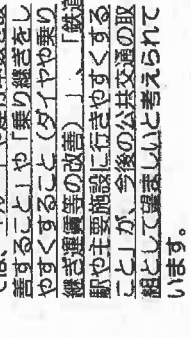 善すること」や「乗り継ぎをし
やすくすること（ダイヤや乗り
継ぎ運賃等の改善）」、「鉄道
駅や主要施設に行きやすくする
こと」が、今後の公共交通の取
組として望ましいと考えられて
います。